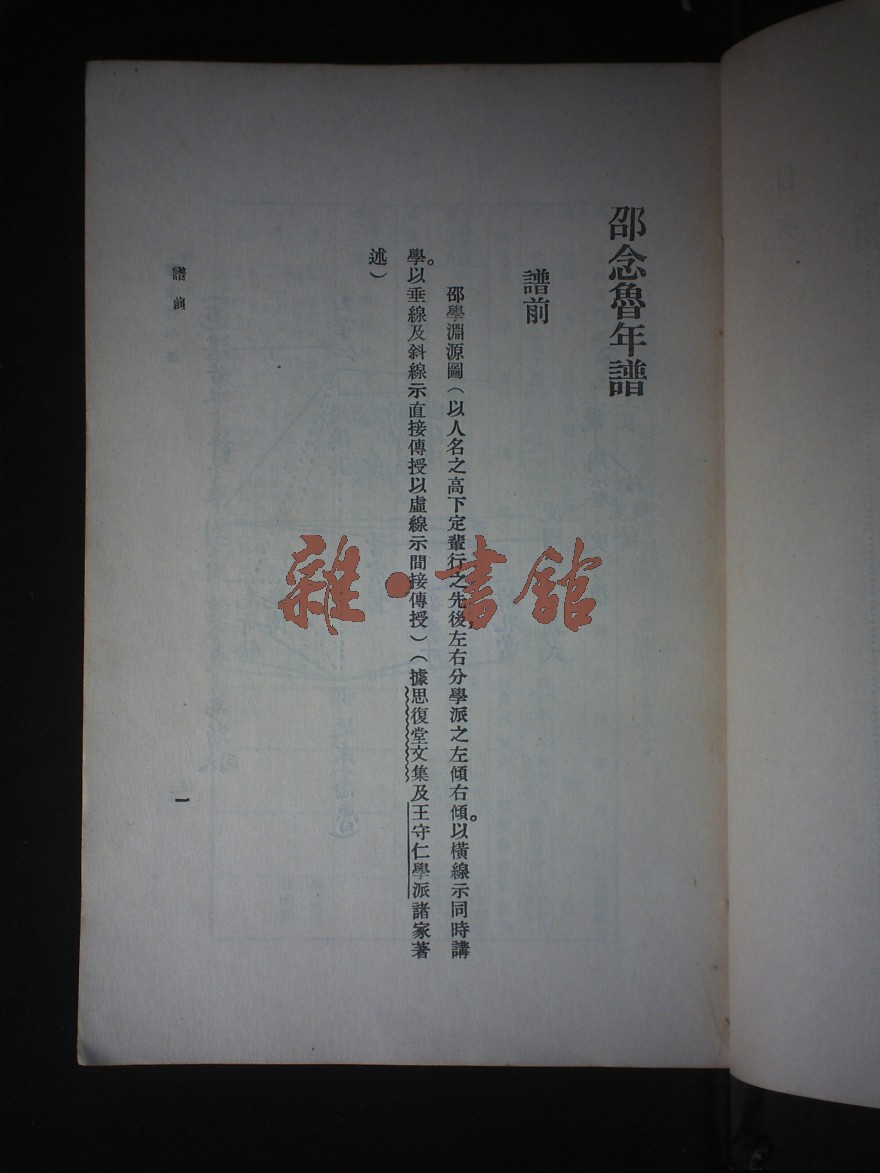 邵念魯年譜
譜前
邵學淵源圖（以人名之高下定輩行之先後，左右分學派之左傾右傾。以橫線示同時講
學。以垂線及斜線示直接傳授以虛線示間接傳授）（據思復堂文集及王守仁學派諸家著
述）
譜前
一
雜·書館